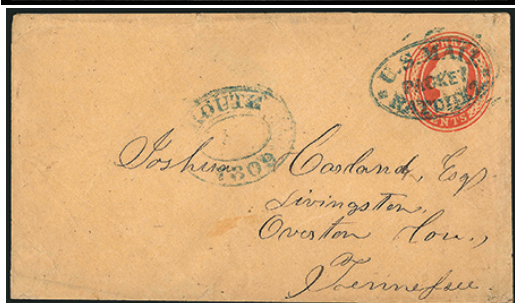 U.S. MAIL
PACKET
ROUTE
7309
CENTS
Joshua Casland, Esq
Livingston,
Overton Cou.,
Tennessee.